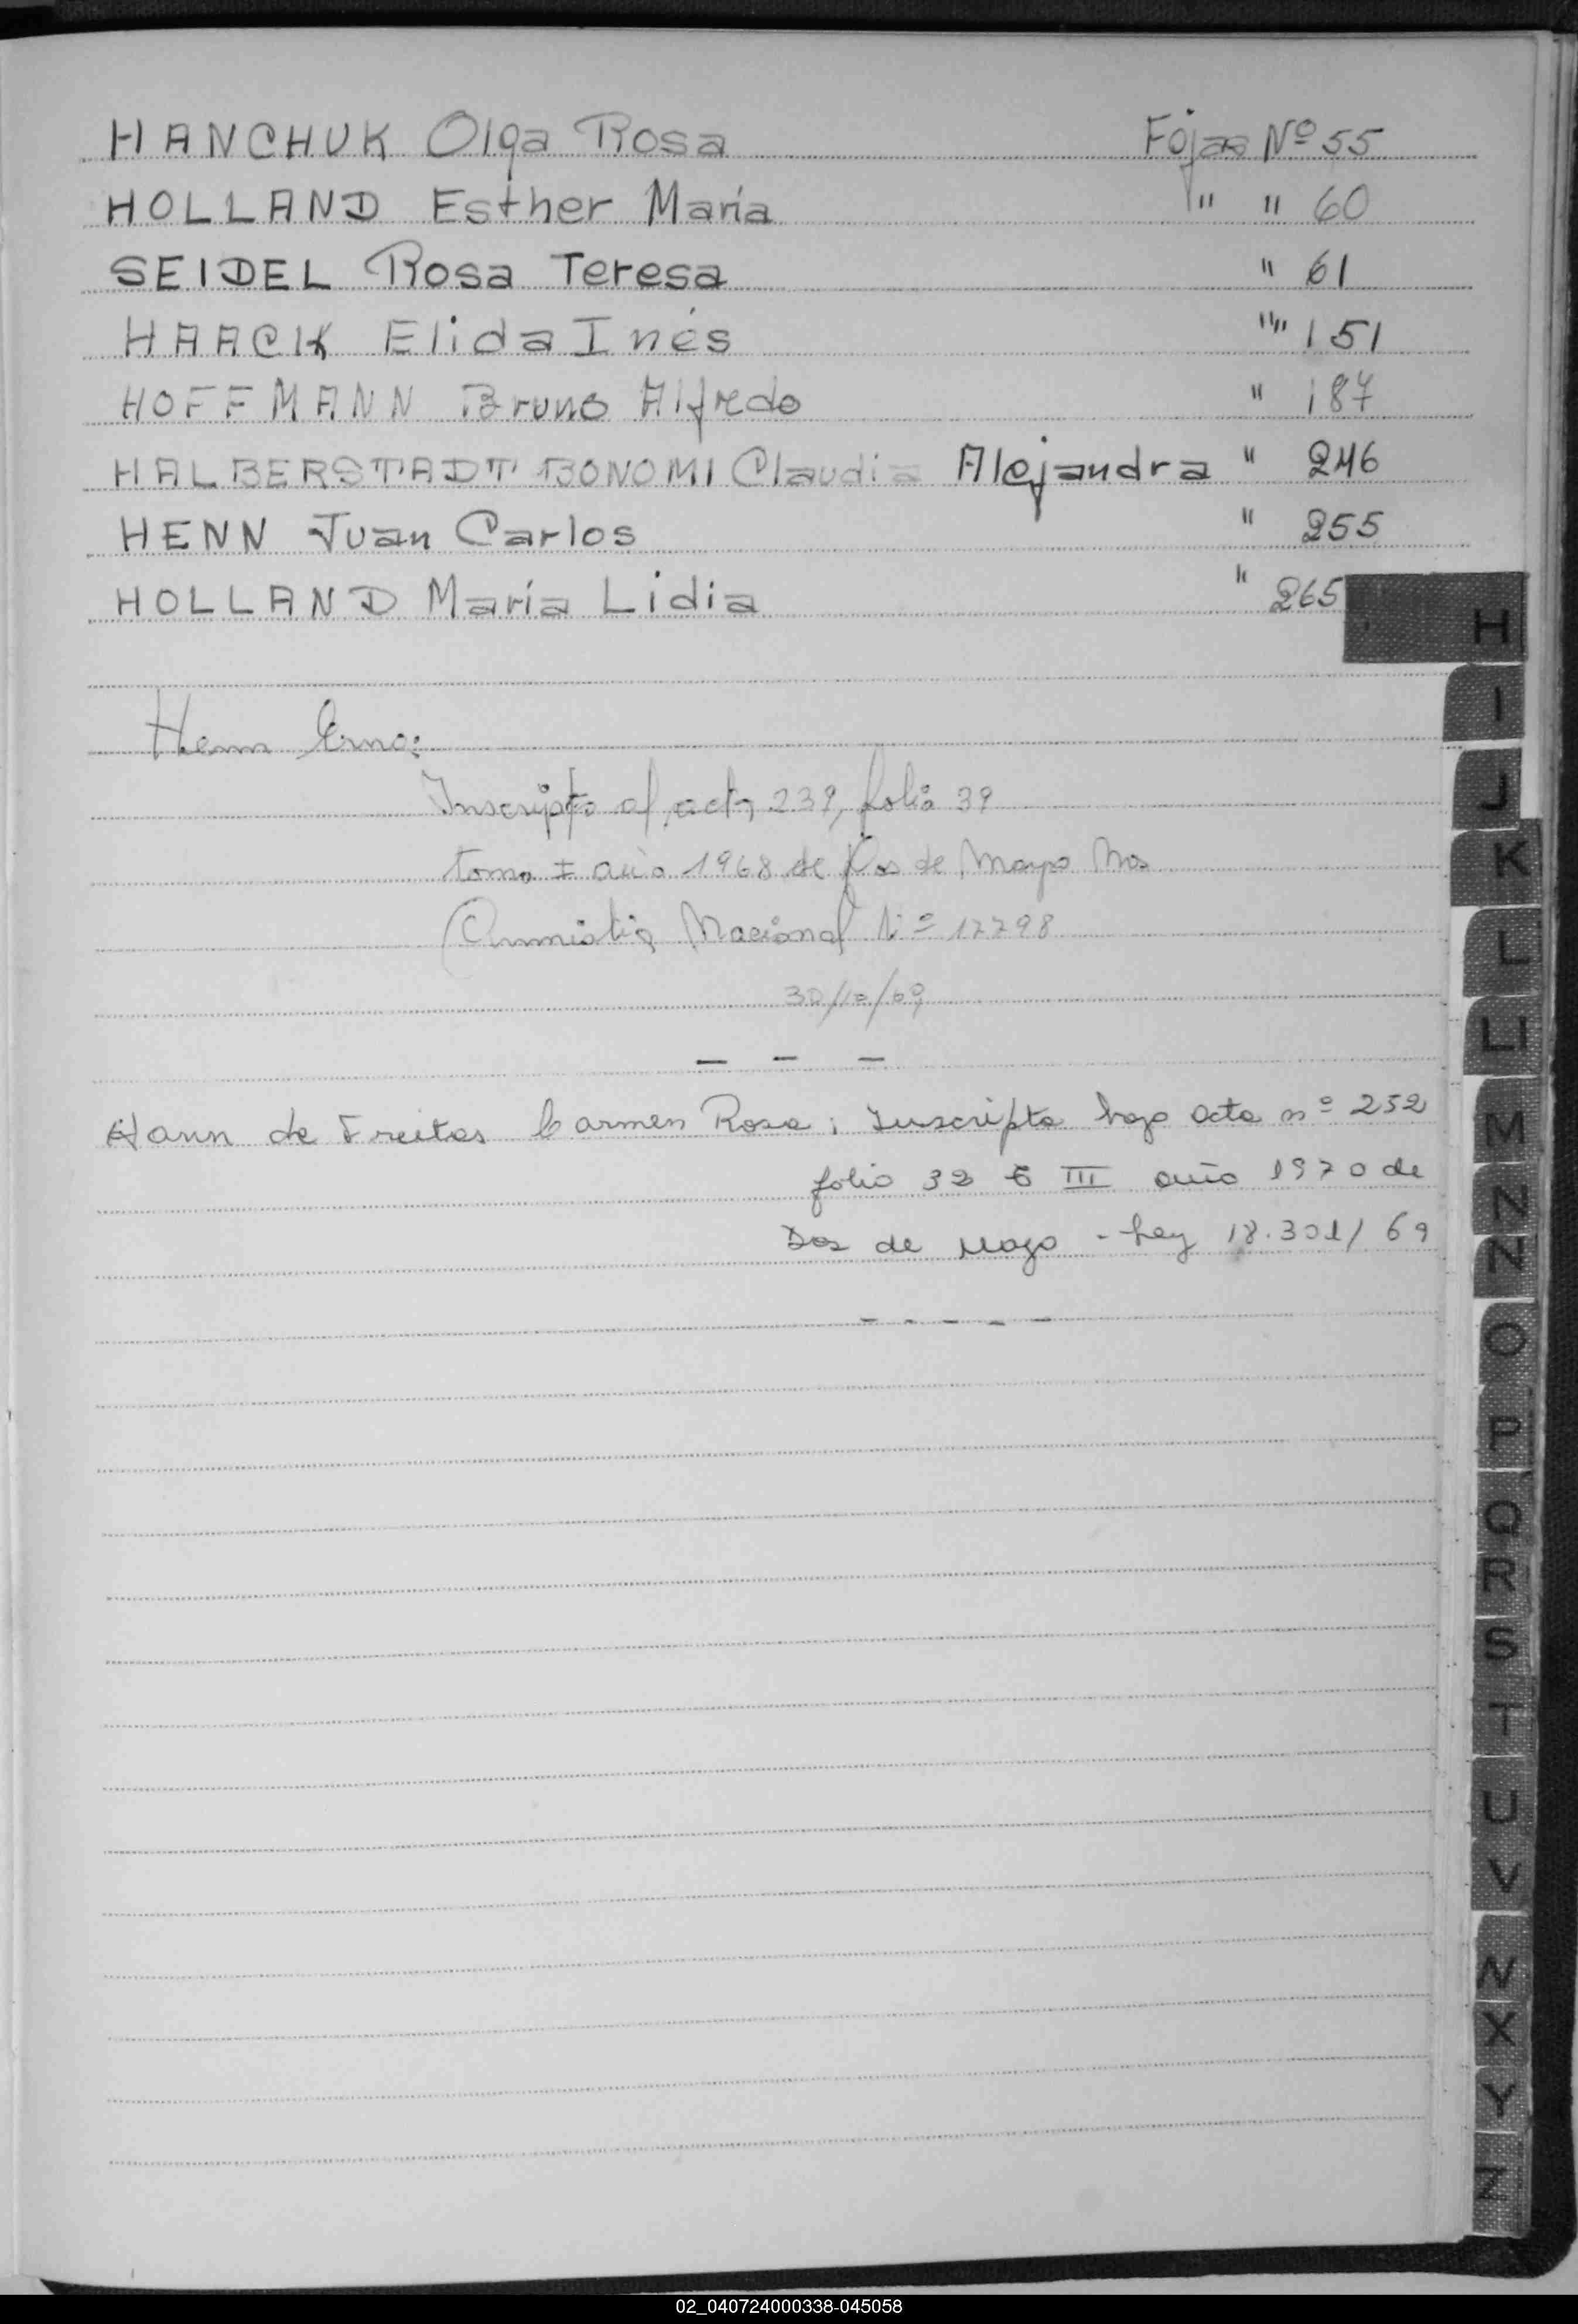 HANCHUK Olga Rosa Fojas Nº 55
HOLLAND Esther María " " 60
SEIDEL Rosa Teresa " 61
HAACK Elida Inés "" 151
HOFFMANN Bruno Alfredo " 187
HALBERSTADT BONOMI Claudia Alejandra " 246
HENN Juan Carlos " 255
HOLLAND María Lidia " 265
Henn Erno:
Inscripto al acta 239, folio 39
tomo I año 1968 de Dos de Mayo Mnes
Amnistia Nacional Nº 17798
30/10/69
- - -
Hann de Freitas Carmen Rosa; Inscripta bajo acta nº 252
folio 32 t III año 1970 de
Dos de Mayo - Ley 18.301/69
- - - - -
H
I
J
K
L
LL
M
N
Ñ
O
P
Q
R
S
T
U
V
W
X
Y
Z
02_040724000338-045058